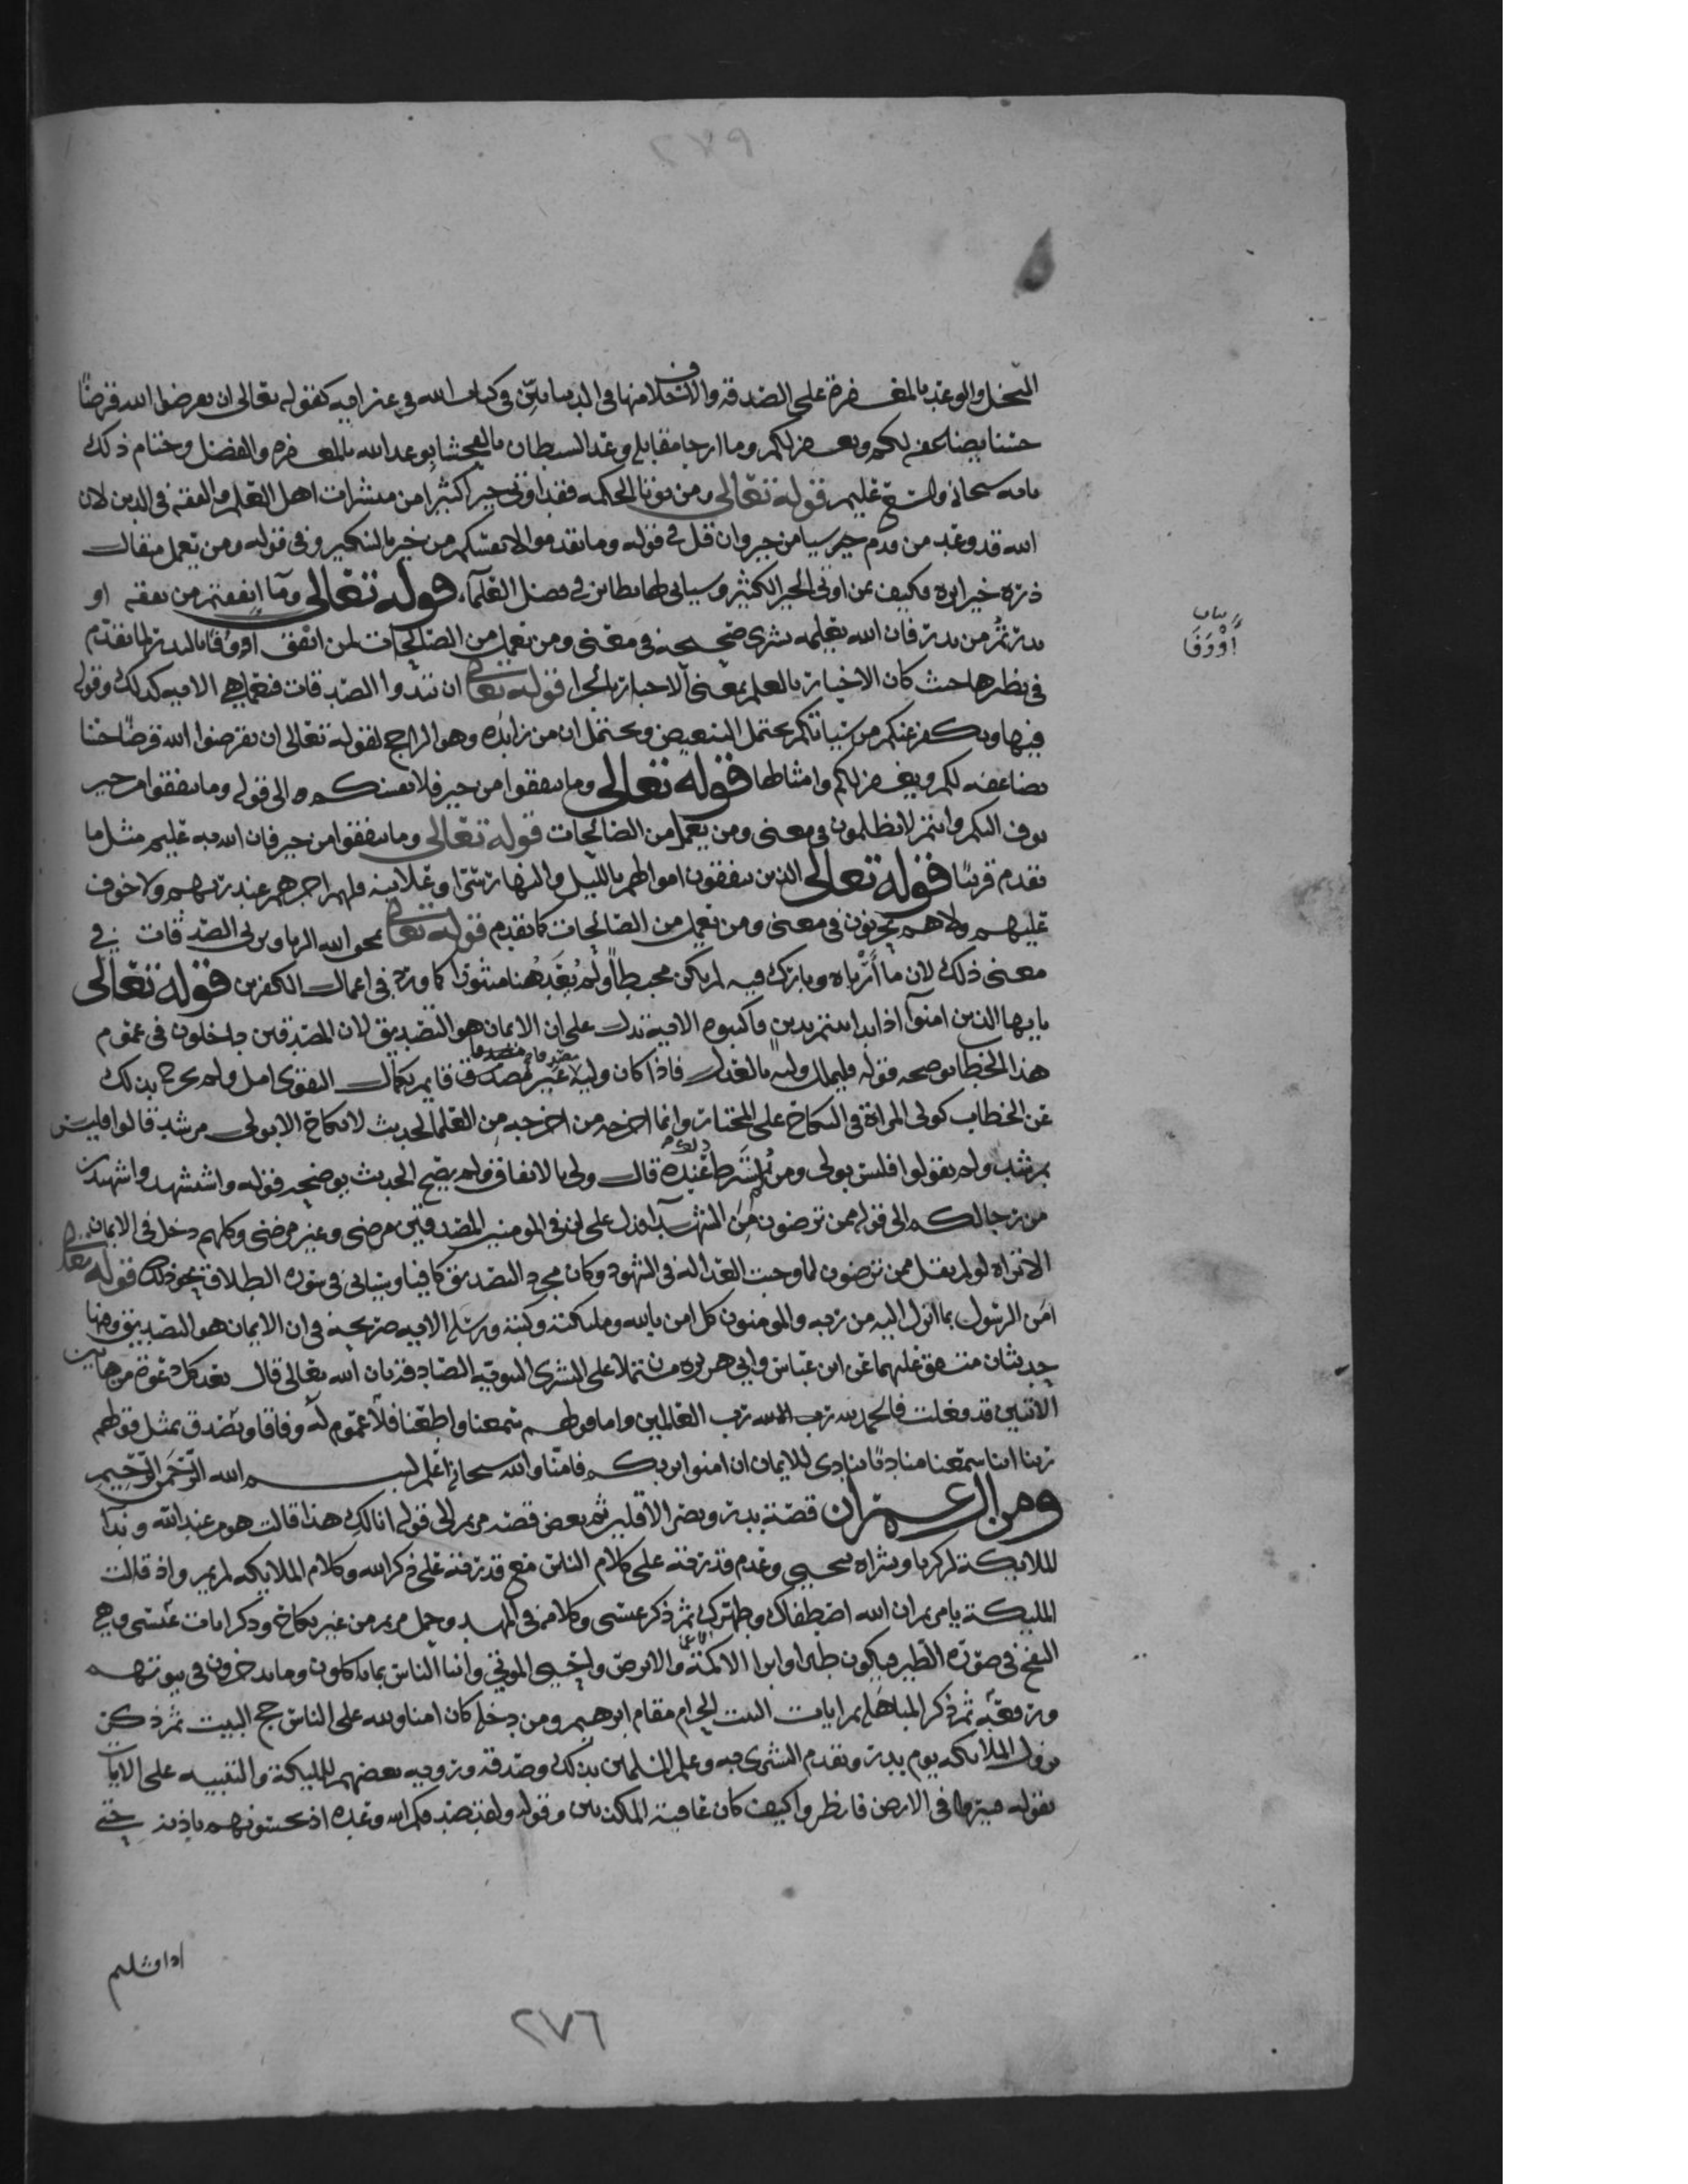 ٢٧٩
البخل والوعد بالمغفرة على الصدقة والاخلاف منها في الدنيا مبين في كتاب الله في غير اية كقوله تعالى ان تقرضوا الله قرضًا
حسنا يضاعفه لكم ويغفر لكم وما ارجا مقابله وعد الشيطان بالفحشا بوعد الله بالمغفره والفضل وختام ذلك
بانه سبحانه واسع عليم قوله تعالى ومن يوتا الحكمه فقد اوتي خيرا كثيرا من مبشرات اهل العلم والفقه في الدين لان
الله قد وعد من قدم خير سيا من خير وان قل في قوله وما تقدموا لانفسكم من خير بالتنكير وفي قوله ومن يعمل مثقال
ذرة خيرا يره فكيف بمن اوتي الخير الكثير وسياتي لها نظاير في فضل العلمآء قوله تعالى ومآ انفقتم من نفقه او
نذرتم من نذر فان الله يعلمه بشرى صحيحة في معنى ومن يعمل من الصالحات لمن انفق أووفا بالنذر لما تقدم
بيان
أوْوَفَا
في نظرها حيث كان الاخبار بالعلم بمعنى الاخبار بالجزا قوله تعالى ان تبدوا الصدقات فنعما هي الايه كذلك وقوله
فيها ويكفر عنكم من سيئاتكم يحتمل التبعيض ويحتمل ان من زايده وهو الراجح لقوله تعالى ان تقرضوا الله قرضًا حسنا
يضاعفه لكم ويغفر لكم وامثالها قوله تعالى وما تنفقوا من خير فلانفسكم الى قوله وما تنفقوا من خير
يوف اليكم وانتم لا تظلمون في معنى ومن يعمل من الصالحات قوله تعالى وما تنفقوا من خير فان الله به عليم مثل ما
تقدم قريبًا قوله تعالى الذين ينفقون اموالهم بالليل والنهار سرًا وعلانية فلهم اجرهم عند ربهم ولا خوف
عليهم ولا هم يحزنون في معنى ومن يعمل من الصالحات كما تقدم قوله تعالى يمحق الله الربا ويربي الصدقات في
معنى ذلك لان ما أرْباه وبارك فيه لم يكن محبطاً ولم يُعَد هبا منثورا كما ورد في اعمال الكفرين قوله تعالى
يايها الذين امنوآ اذا تداينتم بدين فاكتبوه الاية تدل على ان الايمان هو التصديق لان المصدقين داخلون في عموم
هذا الخطاب يوضحه قوله فليملل وليه بالعدل فاذا كان وليه غير مصدق قايم بكمال التقوى امل ولم يخرج بذلك
عن الخطاب كولي المراة في النكاح على المختار وانما اخرجه من اخرجه من العلما لحديث لا نكاح الا بولي مرشد قالوا فليس
بمرشد ولم يقولوا فليس بولي ومن لم يشترط ذلك عنده قال ولي بالاتفاق ولم يصح الحديث يوضحه قوله واستشهدوا شهيدين
من رجالكم الى قوله ممن ترضون من الشهدآء فدل على ان في المومنين المصدقين مرضي وغير مرضي وكلهم دخل في الايمان
الا تراه لو لم يقل ممن ترضون لما وجبت العدالة في الشهود وكان مجرد التصديق كافيا وسياتي في سورة الطلاق نحو ذلك قوله تعالى
امن الرسول بما انزل اليه من ربه والمومنون كل امن بالله وملئكته وكتبه ورسله الايه صريحة في ان الايمان هو التصديق وفيها
حديثان متفق عليهما عن ابن عباس وابي هريره مشتملا على البشرى النبويه الصادقة بان الله تعالى قال بعد كل دعوة من هاتين
الاثنتين قد فعلت فالحمد لله رب العالمين واما قولهم سمعنا واطعنا فلا عموم له وفاقا ويصدق بمثل قولهم
ربنا اننا سمعنا مناديًا ينادي للايمان ان امنوا بربكم فامنا والله سبحانه اعلم بسم الله الرحمن الرحيم
ومن ال عمران قصة بدر ونصر الاقلين ثم بعض قصة مريم الى قوله انا لك هذا قالت هو من عند الله وندا
الملايكة لزكريا وبشراه بيحيى وعدم قدرته على كلام الناس مع قدرته على ذكر الله وكلام الملايكه لمريم واذ قالت
المليكة يا مريم ان الله اصطفاك وطهرك ثم ذكر عيسى وكلامه في المهد وحمل مريم من غير نكاح وذكر ايات عيسى وهي
النفخ في صورة الطير فيكون طيرا وابرا الاكمه والابرص واحيى الموتى وانبا الناس بما ياكلون وما يدخرون في بيوتهم
ورفعه ثم ذكر المباهلة ثم ايات البيت الحرام مقام ابرهيم ومن دخله كان امنا ولله على الناس حج البيت ثم ذكر
نزول الملائكه يوم بدر وتقدم البشرى به وعلم المسلمين بذلك وصدقه وروية بعضهم للمليكة والتنبيه على الايات
بقوله فسيروا في الارض فانظروا كيف كان عاقبة المكذبين وقوله ولقد صدقكم الله وعده اذ تحسونهم باذنه حتى
اذا فشلتم
٢٧٦